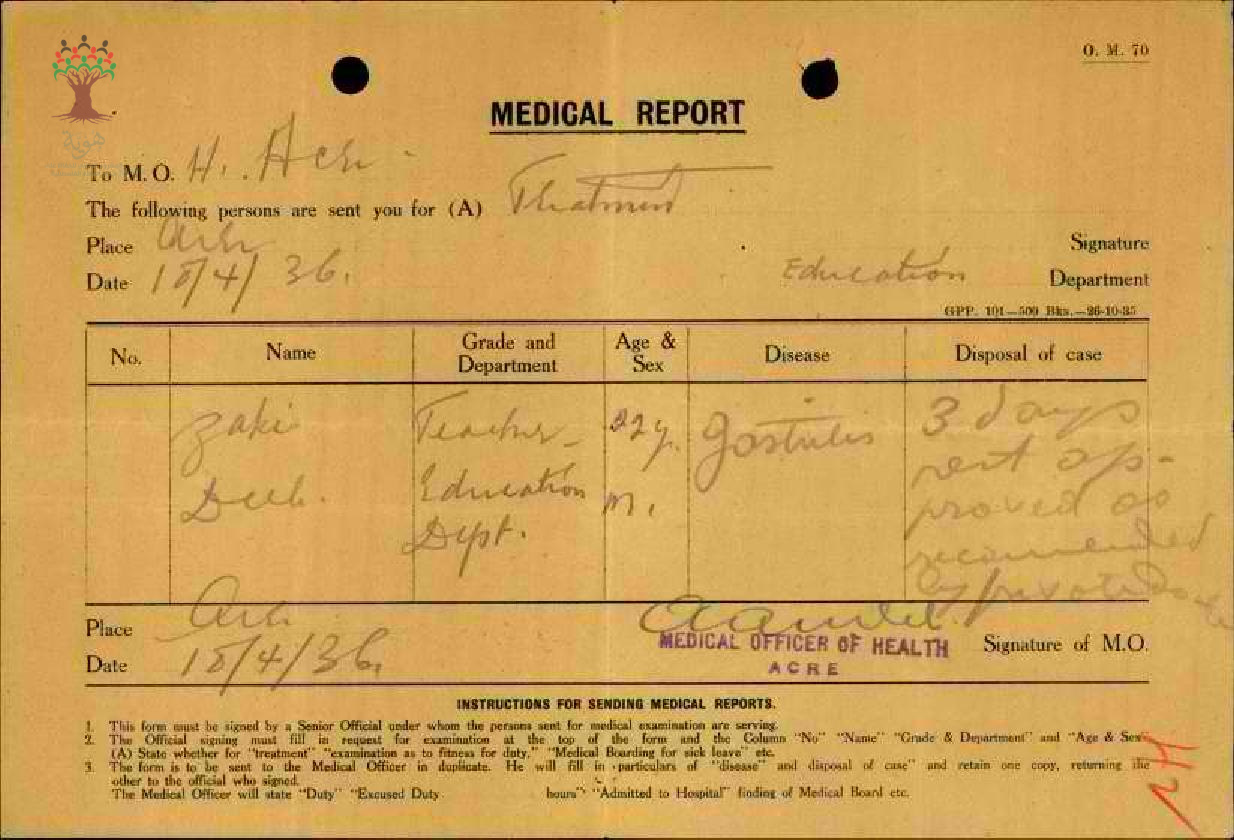 هوية
O. M. 70
MEDICAL REPORT
To M.O. H. Acre
The following persons are sent you for (A) Treatment
Place Acre
Signature
Date 18/4/36.
Education Department
GPP. 101—500 Bks.—26-10-35
No. Name Grade and Department Age & Sex Disease Disposal of case
Zaki Deeb. Teacher - Education Dept. 22 y. M. gastritis 3 days rest approved as recommended by private
Place Acre
MEDICAL OFFICER OF HEALTH
ACRE
Signature of M.O.
Date 18/4/36.
INSTRUCTIONS FOR SENDING MEDICAL REPORTS.
1. This form must be signed by a Senior Official under whom the persons sent for medical examination are serving.
2. The Official signing must fill in request for examination at the top of the form and the Column "No" "Name" "Grade & Department" and "Age & Sex"
(A) State whether for "treatment" "examination as to fitness for duty," "Medical Boarding for sick leave" etc.
3. The form is to be sent to the Medical Officer in duplicate. He will fill in particulars of "disease" and disposal of case" and retain one copy, returning the
other to the official who signed.
The Medical Officer will state "Duty" "Excused Duty hours" "Admitted to Hospital" finding of Medical Board etc.